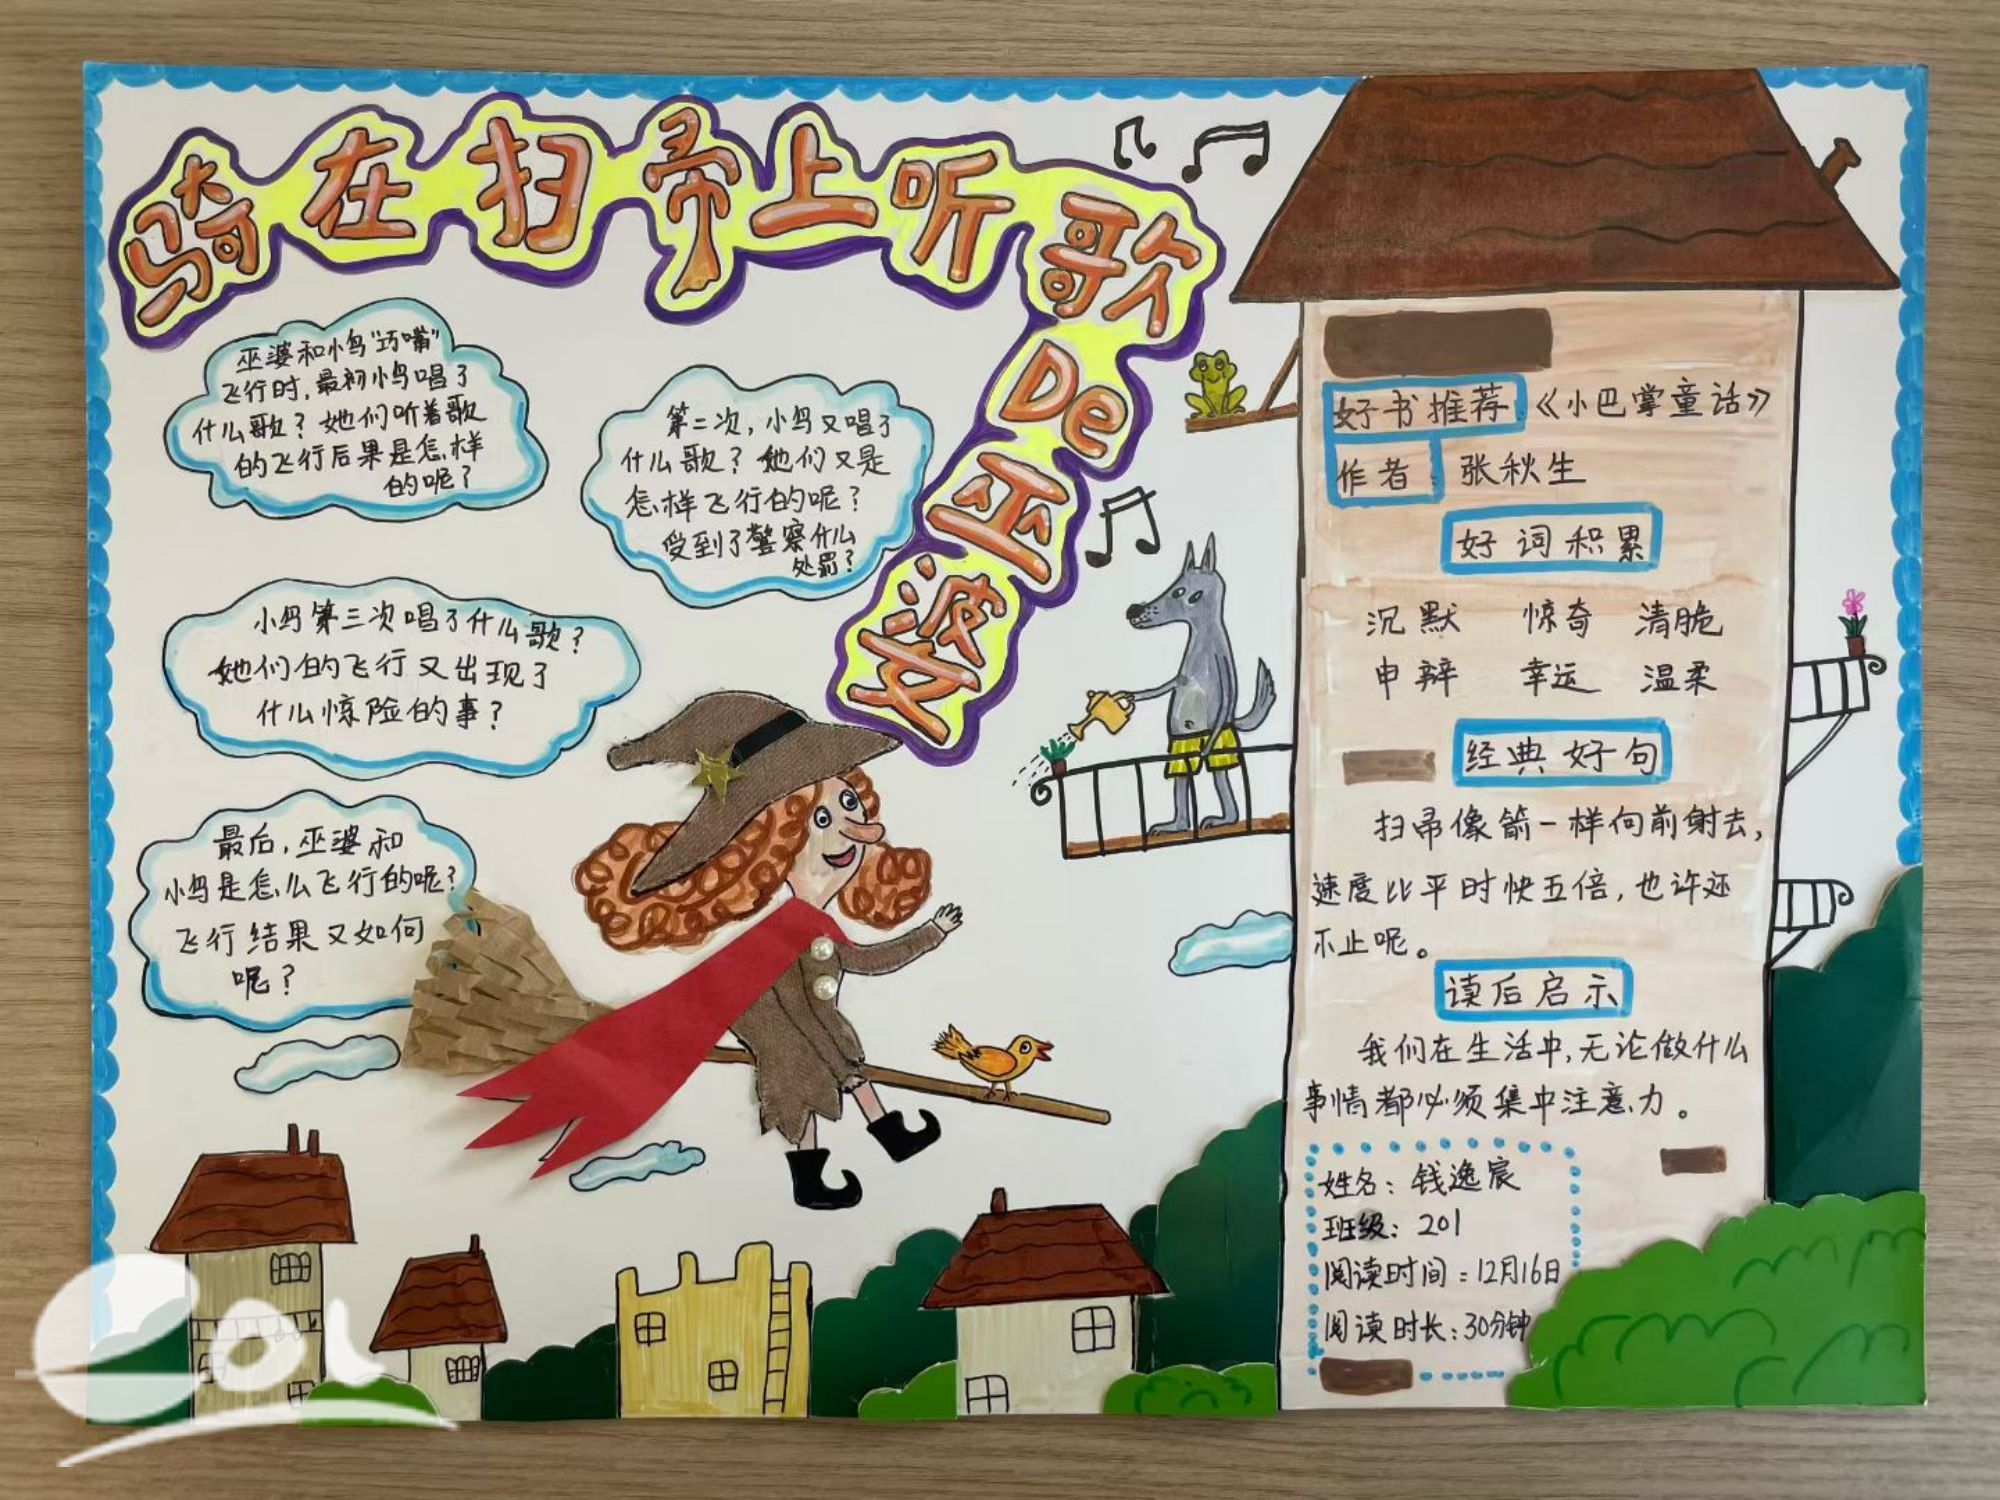 骑在扫帚上听歌De巫婆
巫婆和小鸟"巧嘴"
飞行时,最初小鸟唱了
什么歌?她们听着歌
的飞行后果是怎样
的呢?
第二次,小鸟又唱了
什么歌?她们又是
怎样飞行的呢?
受到了警察什么
处罚?
小鸟第三次唱了什么歌?
她们的飞行又出现了
什么惊险的事?
最后,巫婆和
小鸟是怎么飞行的呢?
飞行结果又如何
呢?
好书推荐:《小巴掌童话》
作者:张秋生
好词积累
沉默 惊奇 清脆
申辩 幸运 温柔
经典好句
扫帚像箭一样向前射去,
速度比平时快五倍,也许还
不止呢。
读后启示
我们在生活中,无论做什么
事情都必须集中注意力。
姓名:钱逸宸
班级:201
阅读时间:12月16日
阅读时长:30分钟
eol